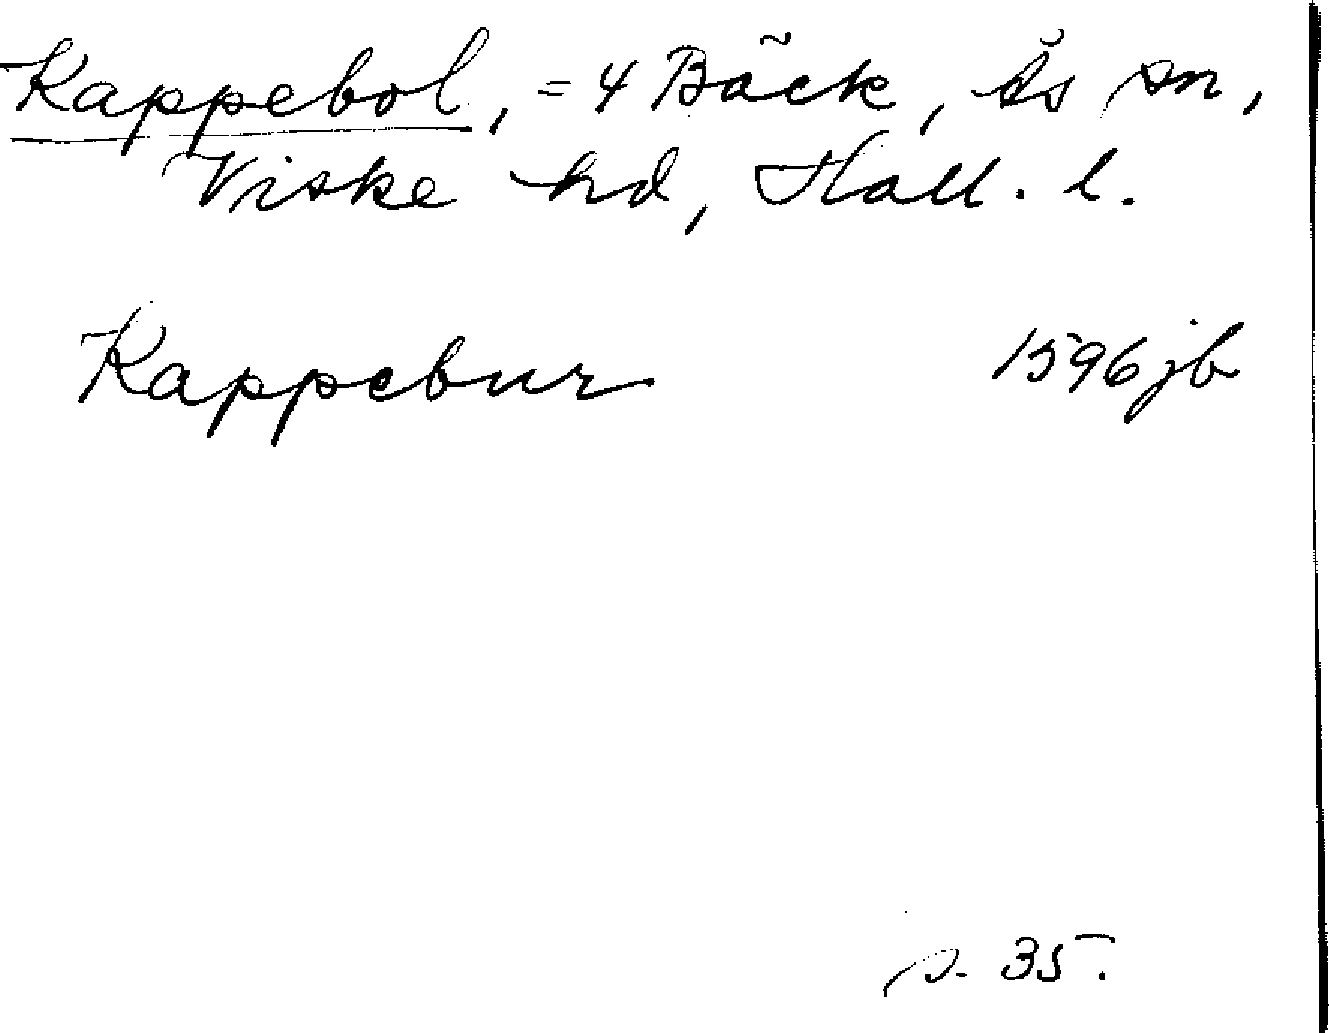 Kappebol, = 4 Bäck, Ås sn,
Viske hd, Hall. l.
Kappebur 1596 jb
s. 35.